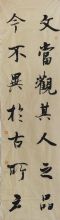 文當觀其人之品
今不異於古所云